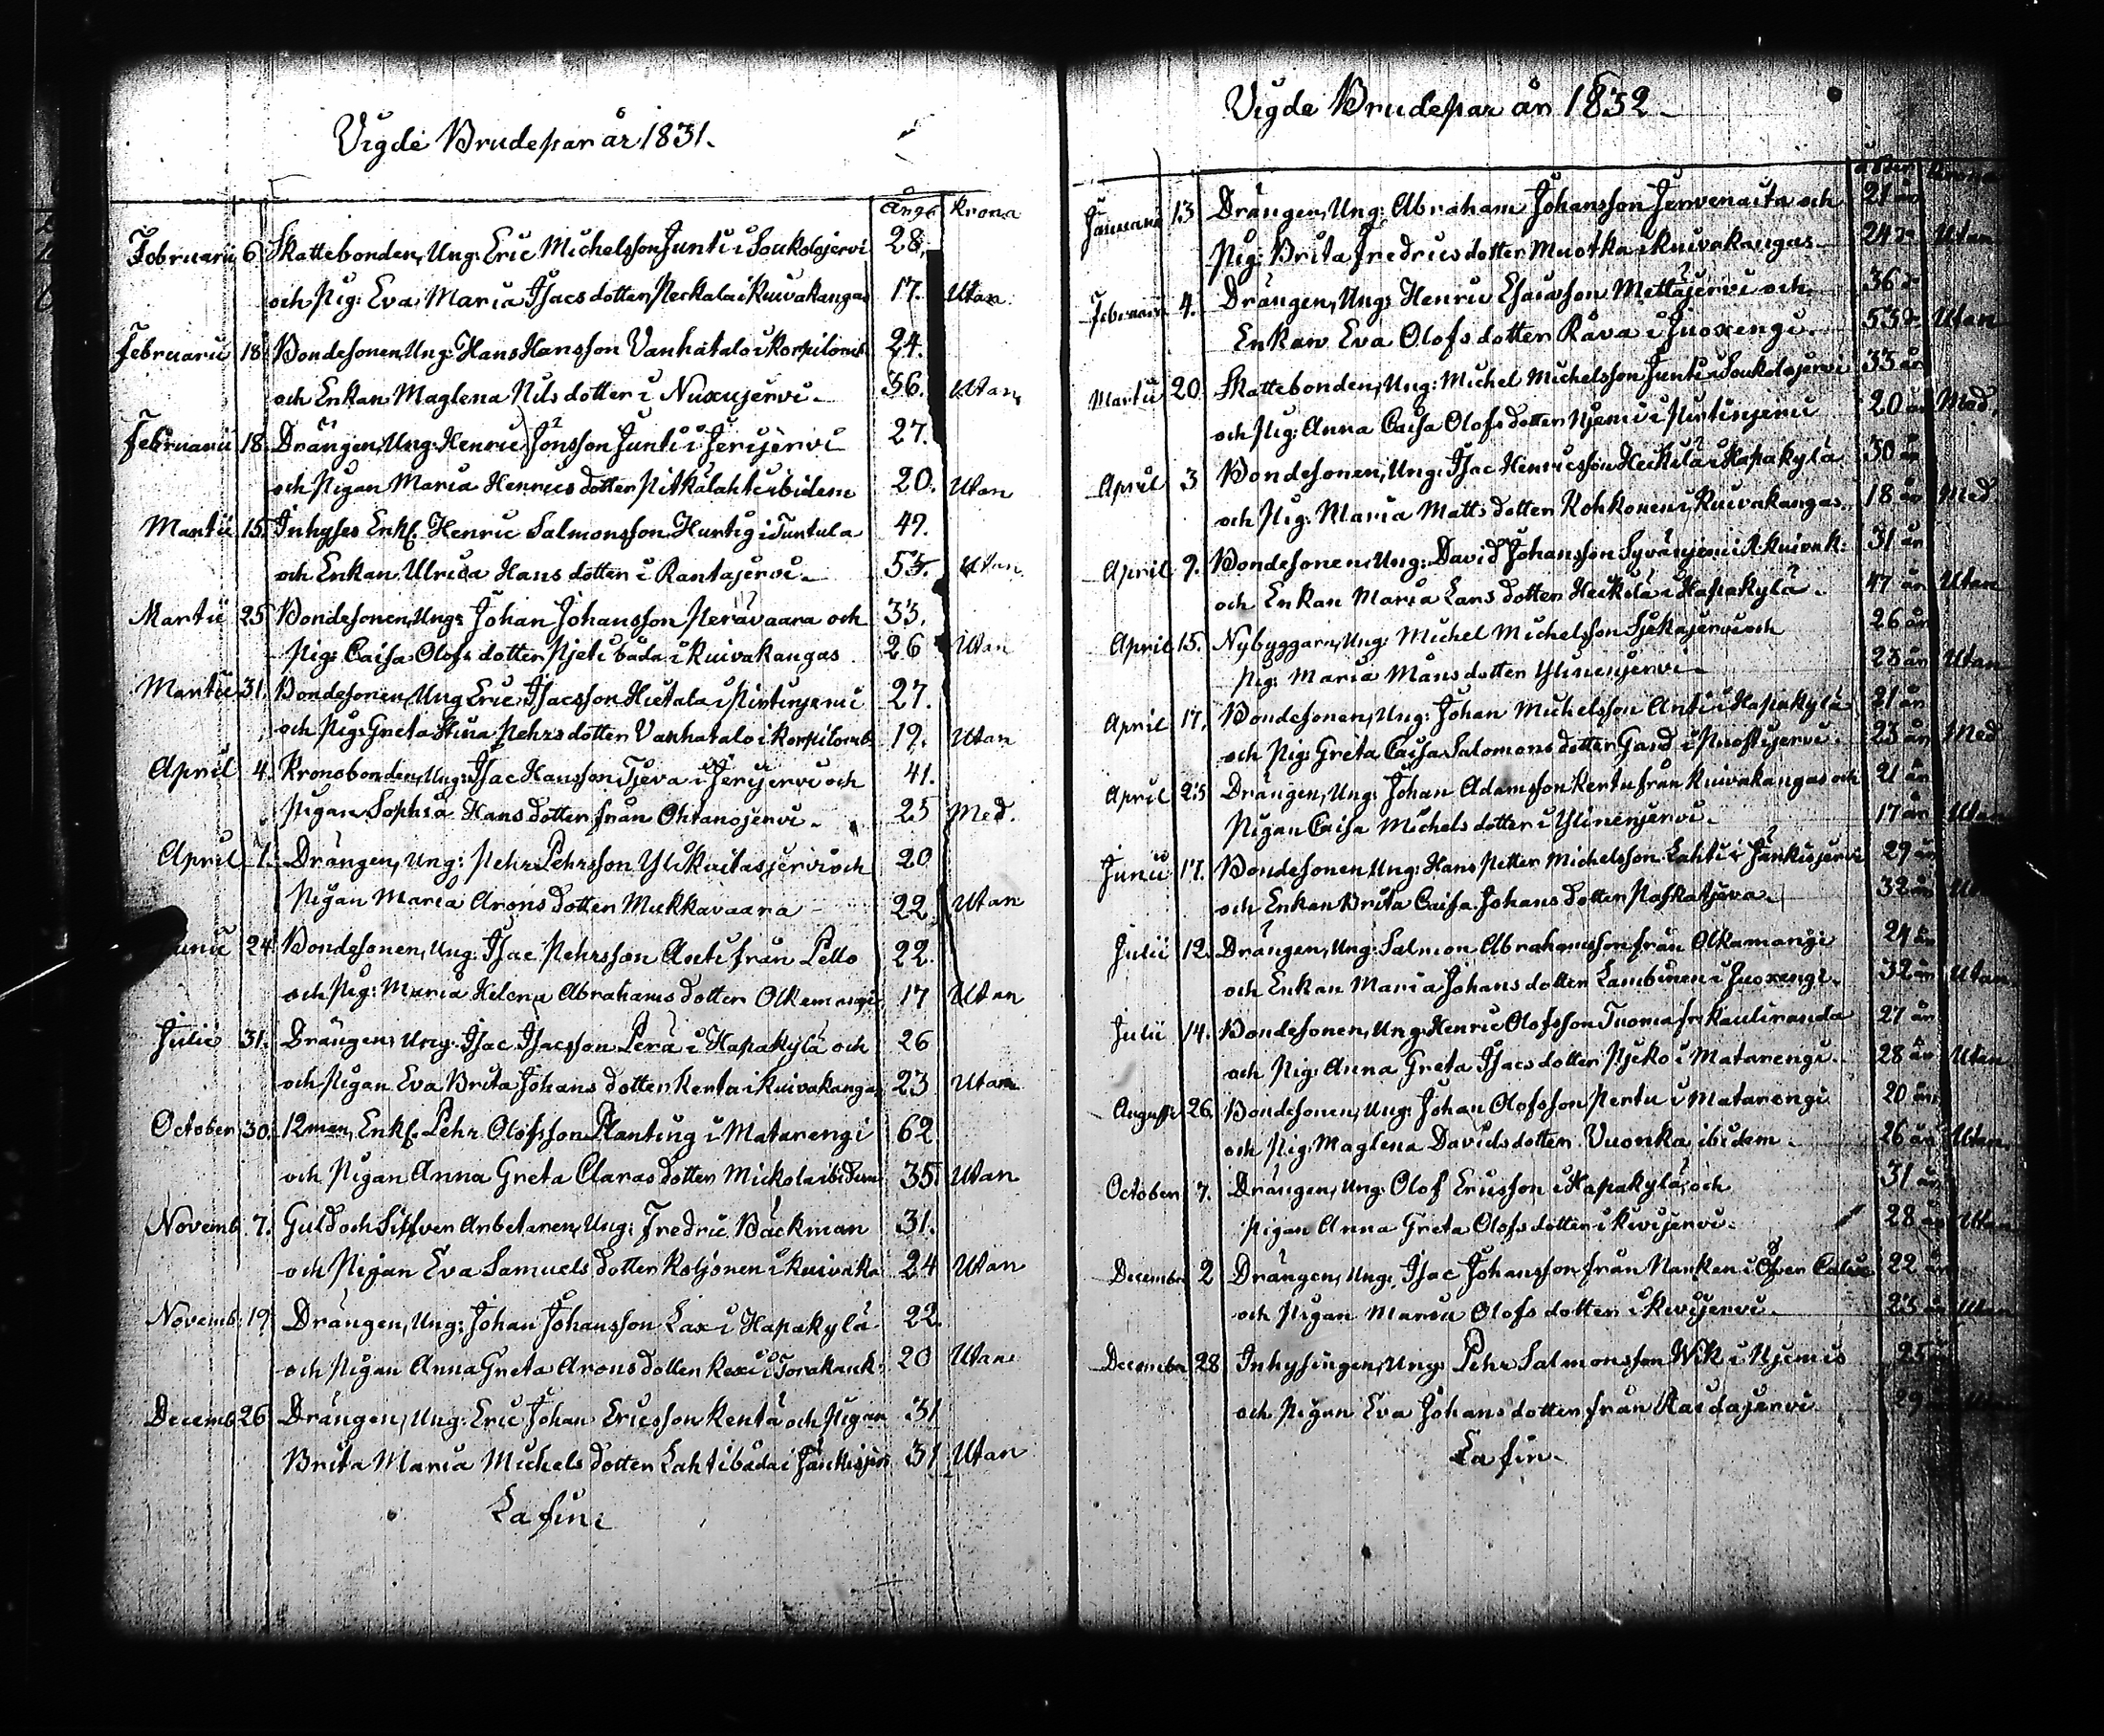 Vigde Brudepar år 1831.
Krona
Februarii 6. Skattebonden, Ung: Eric Michelsson Junti i Soukolojervi 28.
och Pig: Eva Maria Isacs dotter Peckala i Kuivakangas 17. Utan
Februarii 18. Bondesonen Ung: Hans Hansson Vanhatalo i Korpilomb. 24.
och Enkan Maglena Nils dotter i Nuxujervi. 36. Utan
Februarii 18. Drängen, Ung: Henric Jönsson Junti i Jerijervi 27.
och Pigan Maria Henrics dotter Pitkälahti ibidem 20. Utan
Martii 15. Inhyses Enkl. Henric Salmonsson Hurtig i Turtula 49.
och Enkan Ulrica Hans dotter i Rantajervi. 53. Utan
Martii 25 Bondesonen, Ung: Johan Johansson Perävaara och 33.
Pig: Caisa Olofs dotter Pjeti båda i Kuivakangas 26 Utan
Martii 31. Bondesonen, Ung Eric Isacsson Hietala i Pirtinjemi 27.
och Pig: Greta Stina Pehrs dotter Vanhatalo i Korpilomb. 19. Utan
April 4. Kronobonden, Ung: Isac Hansson Tjeva i Jerijervi och 41.
Pigan Sophia Hans dotter från Ohtanojervi. 25 Med.
April 7. Drängen, Ung: Pehr Pehrsson Ylikuitasjervi och 20
Pigan Maria Arons dotter Mukkavaara 22. Utan
24 Bondesonen, Ung: Isac Pehrsson Anti från Pello 22.
och Pig: Maria Helena Abrahams dotter Olkamangi 17 Utan
Julii 31. Drängen, Ung: Isac Isacsson Perä i Hapakylä och 26
och Pigan Eva Brita Johans dotter Kenta i Kuivakangas 23 Utan
October 30. 12man, Enkl. Pehr Olofsson Planting i Matarengi 62.
och Pigan Anna Greta Claras dotter Mickola ibidem 35. Utan
Novemb. 7. Guld och Silfver Arbetaren, Ung: Fredric Bäckman 31.
och Pigan Eva Samuels dotter Koljonen i Kuivaka 24 Utan
Novemb. 19. Drängen, Ung: Johan Johansson Lax i Hapakylä 22.
och Pigan Anna Greta Arons dotter Kexi i Torakank: 20 Utan
Decemb. 26 Drängen, Ung: Eric Johan Ericsson Kentä och Pigan 31
Brita Maria Michels dotter Lahti båda i Jänkisjerv 31 Utan
La fin
Vigde Brudepar år 1832
Januarii 13 Drängen, Ung: Abraham Johansson Jervenaita och 21 år
Pig: Brita Fredrics dotter Muotka i Kuivakangas 24 Utan
Februarii 4. Drängen, Ung: Henric Esaiasson Mettäjervi och 36
Enkan Eva Olofs dotter Räva i Juoxengi. 53 Utan
Martii 20 Skattebonden, Ung: Michel Michelsson Junti i Soukolojervi 33 år
och Pig: Anna Caisa Olofs dotter Njemi i Pirtinjemi 20 år Med.
April 3 Bondesonen, Ung: Isac Henricsson Heikilä i Hapakylä 30 år
och Pig: Maria Matts dotter Kohkonen i Kuivakangas. 18 år Med
April 9. Bondesonen, Ung: David Johansson Syvänjemi i Kuivak: 31 år
och Enkan Maria Lars dotter Heikilä i Hapakylä. 47 år Utan
April 15. Nybyggarn, Ung: Michel Michelsson Sjekajervi och 26 år
Pig: Maria Måns dotter Ylinenjervi 23 år Utan
April 17. Bondesonen, Ung: Johan Michelsson Anti i Hapakylä 21 år
och Pig: Greta Caisa Salomons dotter Gard i Puostijervi. 23 år Med
April 25 Drängen, Ung: Johan Adamsson Kertu från Kuivakangas och 21 år
Pigan Caisa Michels dotter i Ylinenjervi. 17 år Utan
Junii 17. Bondesonen Ung: Hans Petter Michelsson Lahti i Jänkisjervi 29 år
och Enkan Brita Caisa Johans dotter Paskatjeva. 32 år
Julii 12. Drängen, Ung: Salmon Abrahamsson från Olkamangi 24 år
och Enkan Maria Johans dotter Lambinen i Juoxengi. 32 år Utan
Julii 14. Bondesonen, Ung: Henric Olofsson Tuoma fr: Kauliranda 27 år
och Pig: Anna Greta Isacs dotter Pjeko i Matarengi. 28 år Utan
Augusti 26. Bondesonen, Ung: Johan Olofsson Pertu i Matarengi 20 år
och Pig: Maglena Davids dotter Vuonka ibidem. 26 år Utan
October 7. Drängen, Ung: Olof Ericsson i Hapakylä, och 31 år
Pigan Anna Greta Olofs dotter i Kivijervi. 28 år Utan
December 2 Drängen, Ung: Isac Johansson från Nanken i Öfver Calix 22 år
och Pigan Maria Olofs dotter i Kivijervi. 23 år Utan
December 28 Inhysingen, Ung: Pehr Salmonsson Wik i Njemis 25
och Pigan Eva Johans dotter från Raidajärvi 29
La fin.